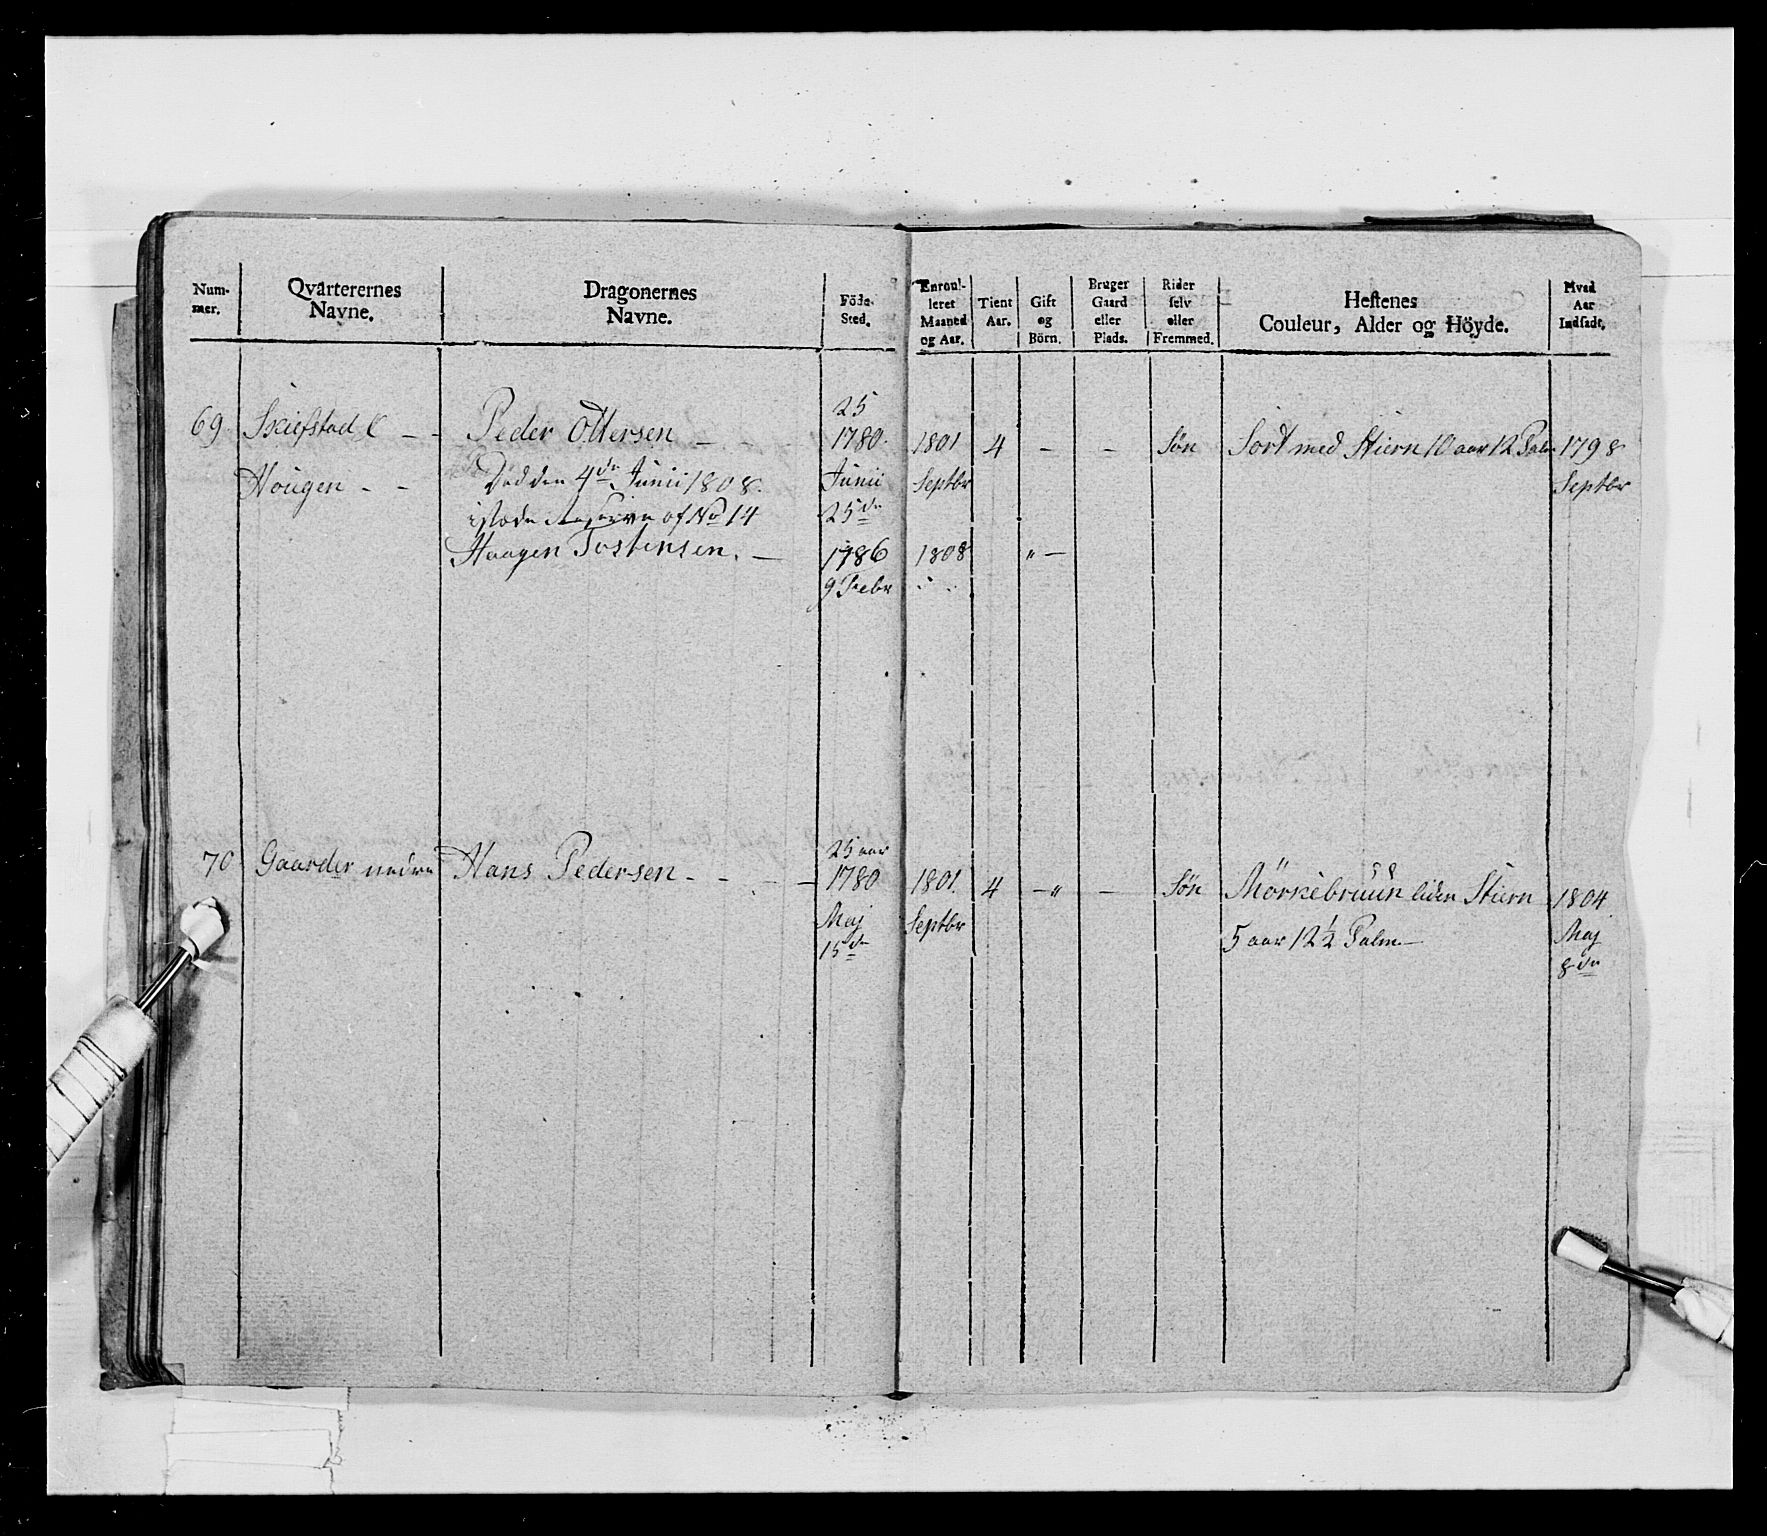 Num-
mer.
Qvarterernes
Navne.
Dragonernes
Navne.
Föde-
Sted.
Enroul-
leret
Maaned
og Aar.
Tient
Aar.
Gift
og
Börn.
Bruger
Gaard
eller
Plads.
Rider
selv
eller
Fremmed.
Hestenes
Couleur, Alder og Höyde.
Hvad
Aar
Indsadt.
69.
Hougen - -
Peder Ottersen - -
Död den 4de Junii 1808.
istæde Reserve af No 14
Haagen Tostensen. -
25
1780.
Junii
25de
1786
9 Febr
1801
Septbr
1808
4
-
" -
-
Søn
Sort med Stiern 10 aar 12 Palm
1798
Septbr
70
Gaarder nedre
Hans Pedersen - - - -
25 aar
1780
Maj
15de
1801.
Septbr
4
- "
-
Søn
Mörkebruun liden Stiern
5 aar 12½ Palm -
1804.
Maj
8de